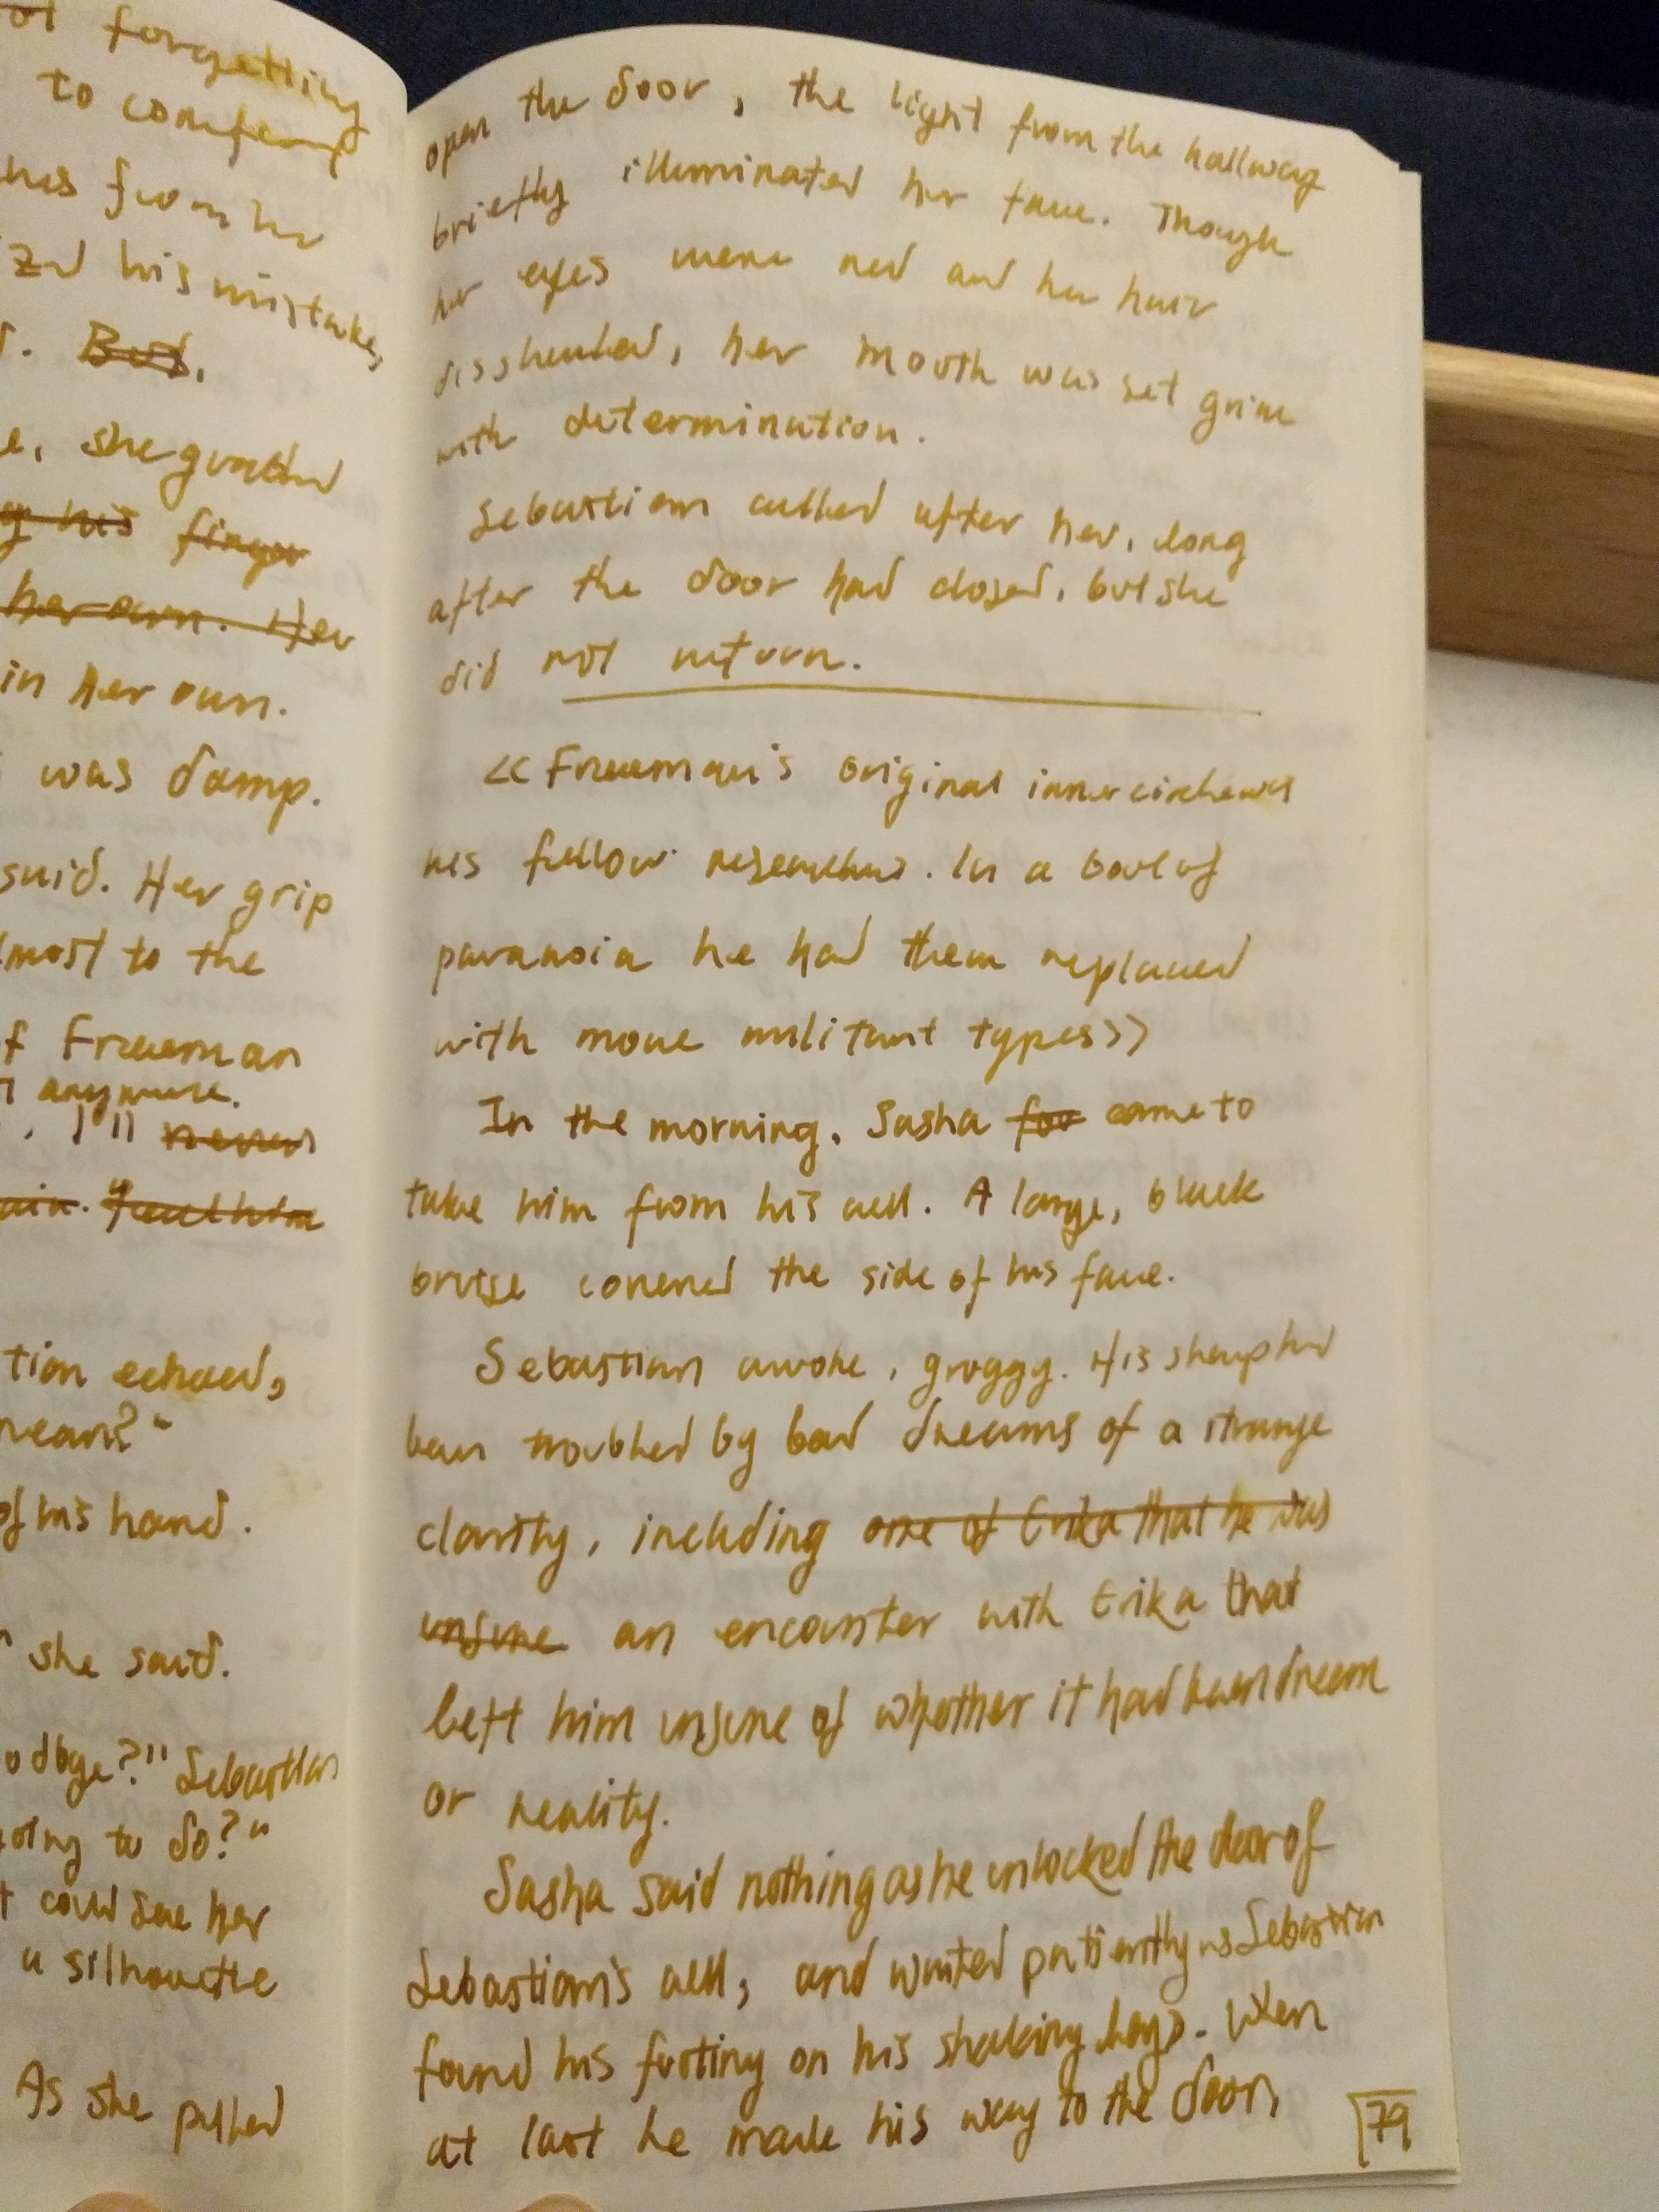 forgetting
to comfort
from her
his mistake,
But.
she
his finger
her own. Her
in her own.
was damp.
said. Her grip
to the
Freeman
anymore.
never
echoed,
mean?"
of his hand.
she said.
Sebastian
to do?"
could see her
a silhouette
As she pulled
open the door, the light from the hallway
briefly illuminated her face. Though
her eyes were red and her hair
disshevled, her mouth was set grim
with determination.
Sebastian called after her, long
after the door had closed, but she
did not return.
<< Freeman's original inner circle was
his fellow researchers. In a bout of
paranoia he had them replaced
with more militant types>>
In the morning, Sasha for came to
take him from his cell. A large, black
bruise covered the side of his face.
Sebastian awoke, groggy. His sleep had
been troubled by bad dreams of a strange
clarity, including one of Erika that he was
unsure an encounter with Erika that
left him unsure of whether it had been dream
or reality.
Sasha said nothing as he unlocked the door of
Sebastian's cell, and waited patiently as Sebastian
found his footing on his shaking legs. When
at last he made his way to the door,
79